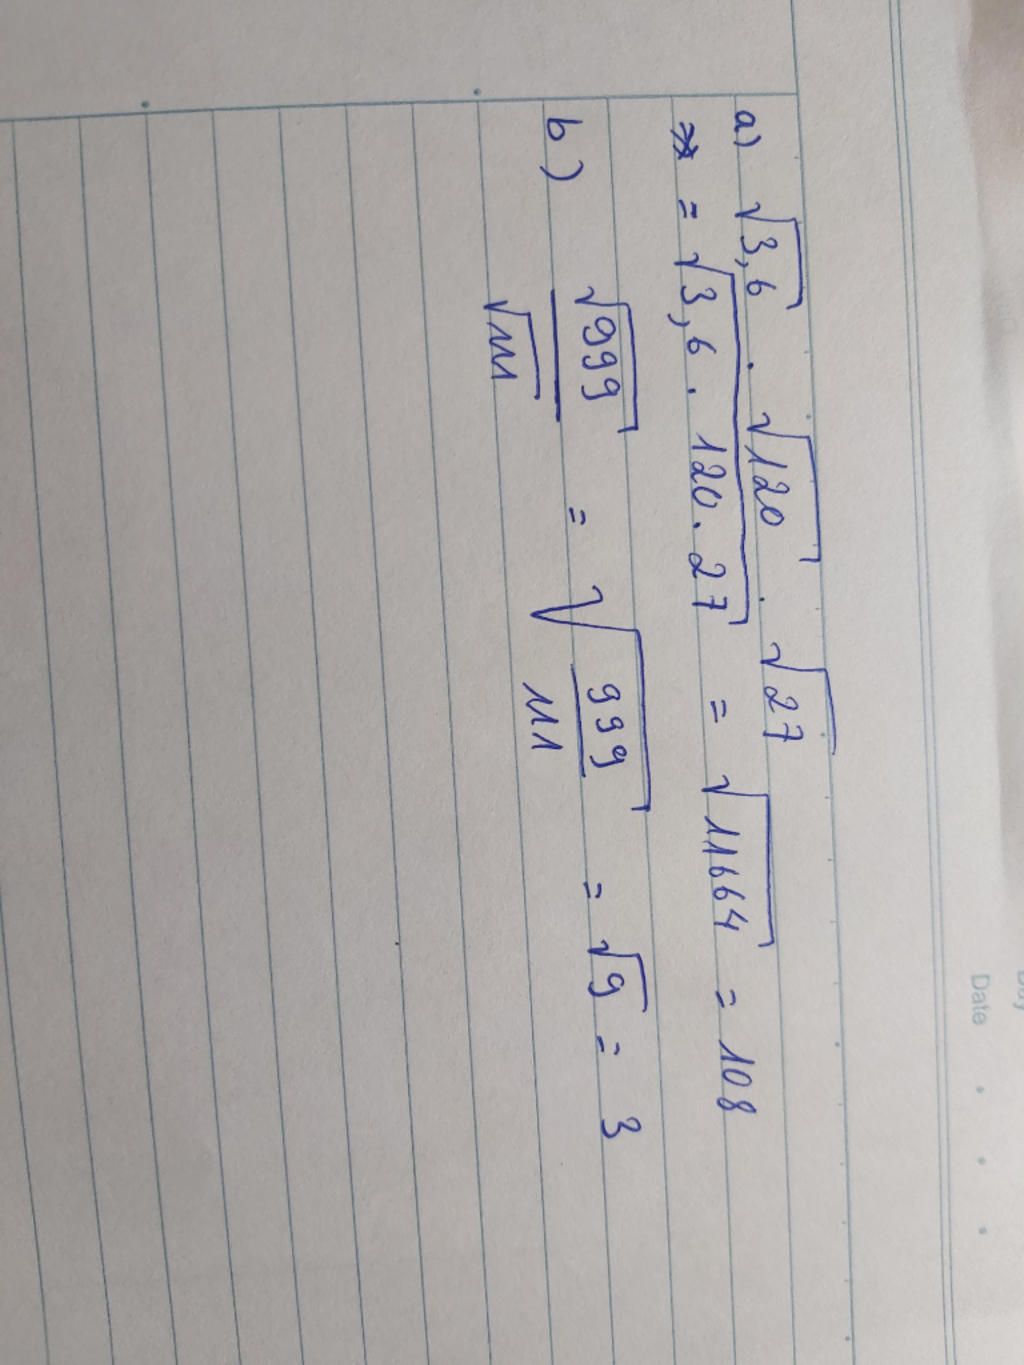 Date
a) √3,6 . √120 . √27
= √3,6 . 120 . 27 = √11664 = 108
b) √999 / √111 = √999/111 = √9 = 3